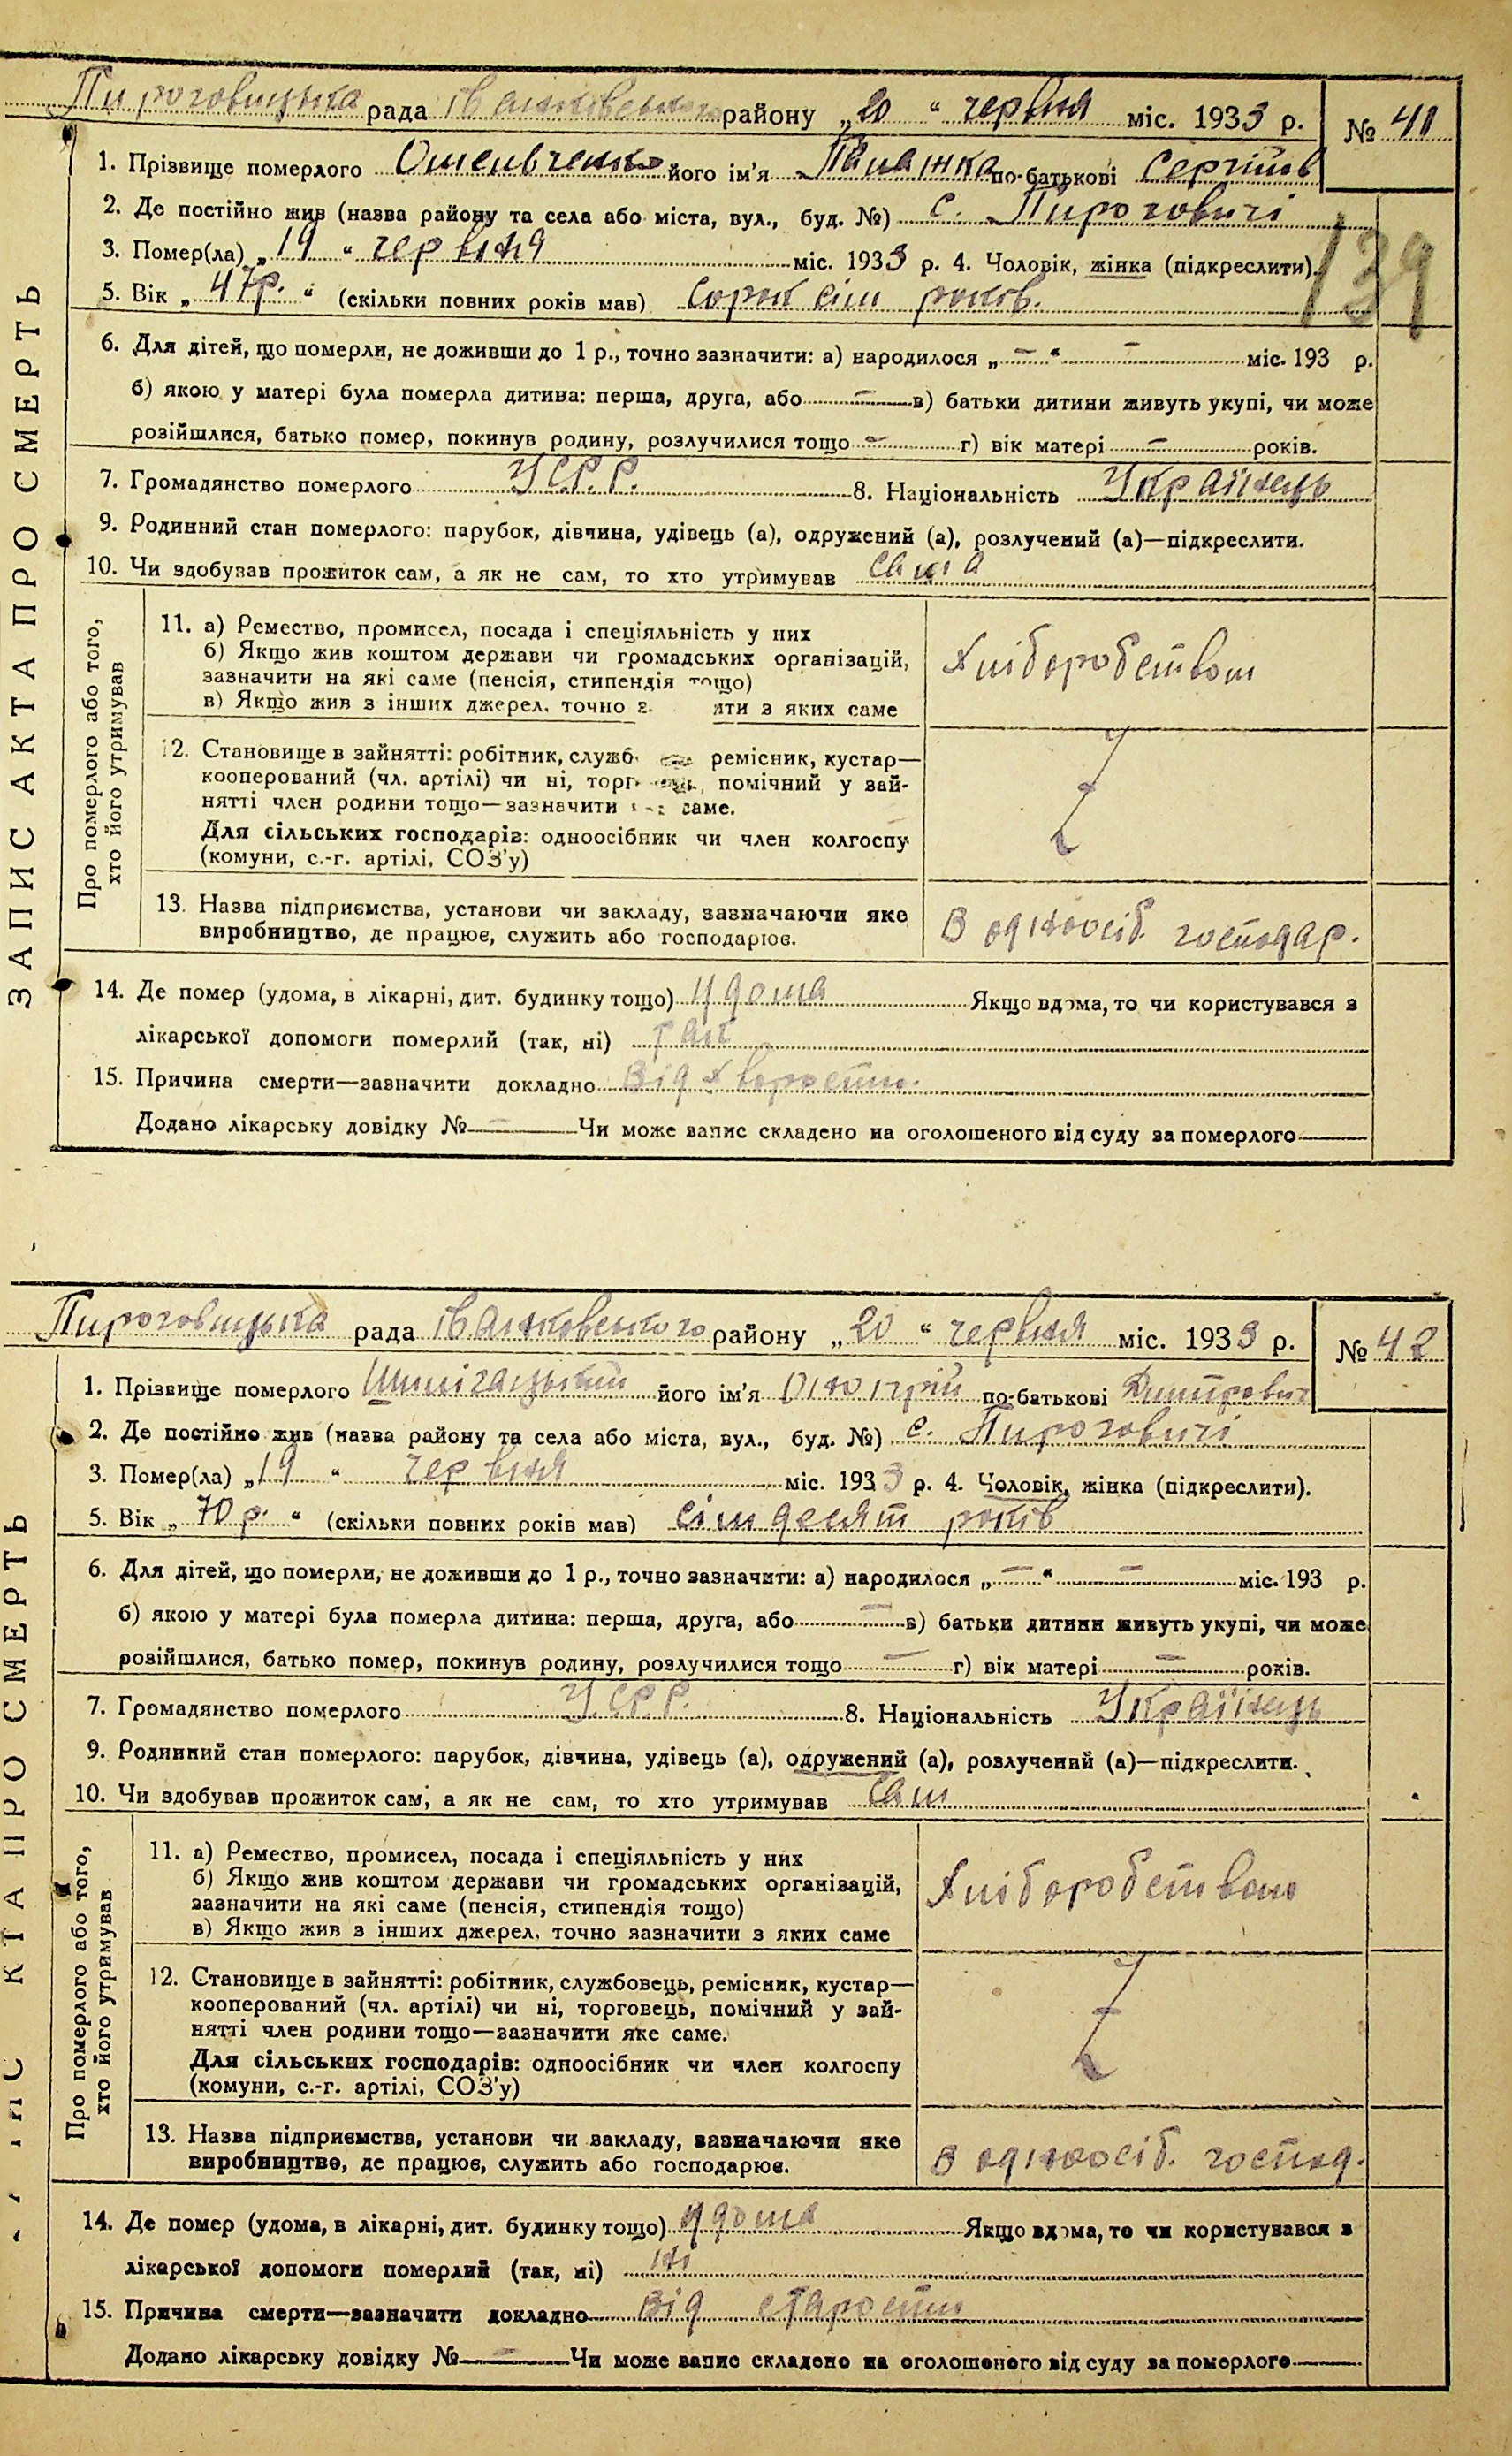 Пироговицька рада Іванковського району „20 “ червня міс. 1933 р. № 41
1. Прізвище померлого Омельченко його ім'я Палажка по-батькові Сергіїв
2. Де постійно жив (назва району та села або міста, вул., буд. №) с. Пироговичі
3. Помер(ла) „19 “ червня міс. 1933 р. 4. Чоловік, жінка (підкреслити).
139
5. Вік „ 47р. “ (скільки повних років мав) сорок сім років.
6. Для дітей, що померли, не доживши до 1 р., точно зазначити: а) народилося „ — “ — міс. 193 р.
б) якою у матері була померла дитина: перша, друга, або — в) батьки дитини живуть укупі, чи може
розійшлися, батько помер, покинув родину, розлучилися тощо — г) вік матері — років.
7. Громадянство померлого У.С.Р.Р. 8. Національність Українець
9. Родинний стан померлого: парубок, дівчина, удівець (а), одружений (а), розлучений (а)—підкреслити.
10. Чи здобував прожиток сам, а як не сам, то хто утримував сама
ЗАПИС АКТА ПРО СМЕРТЬ
Про померлого або того,
хто його утримував
11. а) Ремество, промисел, посада і спеціяльність у них
б) Якщо жив коштом держави чи громадських організацій,
зазначити на які саме (пенсія, стипендія тощо)
в) Якщо жив з інших джерел, точно з яти з яких саме
Хліборобством
12. Становище в зайнятті: робітник, службо ремісник, кустар—
кооперований (чл. артілі) чи ні, торг помічний у зай-
нятті член родини тощо—зазначити саме.
Для сільських господарів: одноосібник чи член колгоспу
(комуни, с.-г. артілі, СОЗ'у)
13. Назва підприємства, установи чи закладу, зазначаючи яке
виробництво, де працює, служить або господарює.
В одноосіб. господар.
14. Де помер (удома, в лікарні, дит. будинку тощо) удома Якщо вдома, то чи користувався з
лікарської допомоги померлий (так, ні) так
15. Причина смерти—зазначити докладно Від хворости.
Додано лікарську довідку № — Чи може запис складено на оголошеного від суду за померлого
Пироговицька рада Іванковського району „20 “ червня міс. 1933 р. № 42
1. Прізвище померлого його ім'я по-батькові Дмитрович
2. Де постійно жив (назва району та села або міста, вул., буд. №) с. Пироговичі
3. Помер(ла) „19 “ червня міс. 1933 р. 4. Чоловік, жінка (підкреслити).
5. Вік „ 70 р. “ (скільки повних років мав) сімдесят років
6. Для дітей, що померли, не доживши до 1 р., точно зазначити: а) народилося „ — “ — міс. 193 р.
б) якою у матері була померла дитина: перша, друга, або — в) батьки дитини живуть укупі, чи може
розійшлися, батько помер, покинув родину, розлучилися тощо — г) вік матері — років.
7. Громадянство померлого У.С.Р.Р. 8. Національність Українець
9. Родинний стан померлого: парубок, дівчина, удівець (а), одружений (а), розлучений (а)—підкреслити.
10. Чи здобував прожиток сам, а як не сам, то хто утримував Сам
КТА ПРО СМЕРТЬ
Про померлого або того,
хто його утримував
11. а) Ремество, промисел, посада і спеціяльність у них
б) Якщо жив коштом держави чи громадських організацій,
зазначити на які саме (пенсія, стипендія тощо)
в) Якщо жив з інших джерел, точно зазначити з яких саме
Хліборобством
12. Становище в зайнятті: робітник, службовець, ремісник, кустар—
кооперований (чл. артілі) чи ні, торговець, помічний у зай-
нятті член родини тощо—зазначити яке саме.
Для сільських господарів: одноосібник чи член колгоспу
(комуни, с.-г. артілі, СОЗ'у)
13. Назва підприємства, установи чи закладу, зазначаючи яке
виробництво, де працює, служить або господарює.
В одноосіб. господ.
14. Де помер (удома, в лікарні, дит. будинку тощо) удома Якщо вдома, то чи користувався з
лікарської допомоги померлий (так, ні) ні
15. Причина смерти—зазначити докладно Від старости
Додано лікарську довідку № — Чи може запис складено на оголошеного від суду за померлого